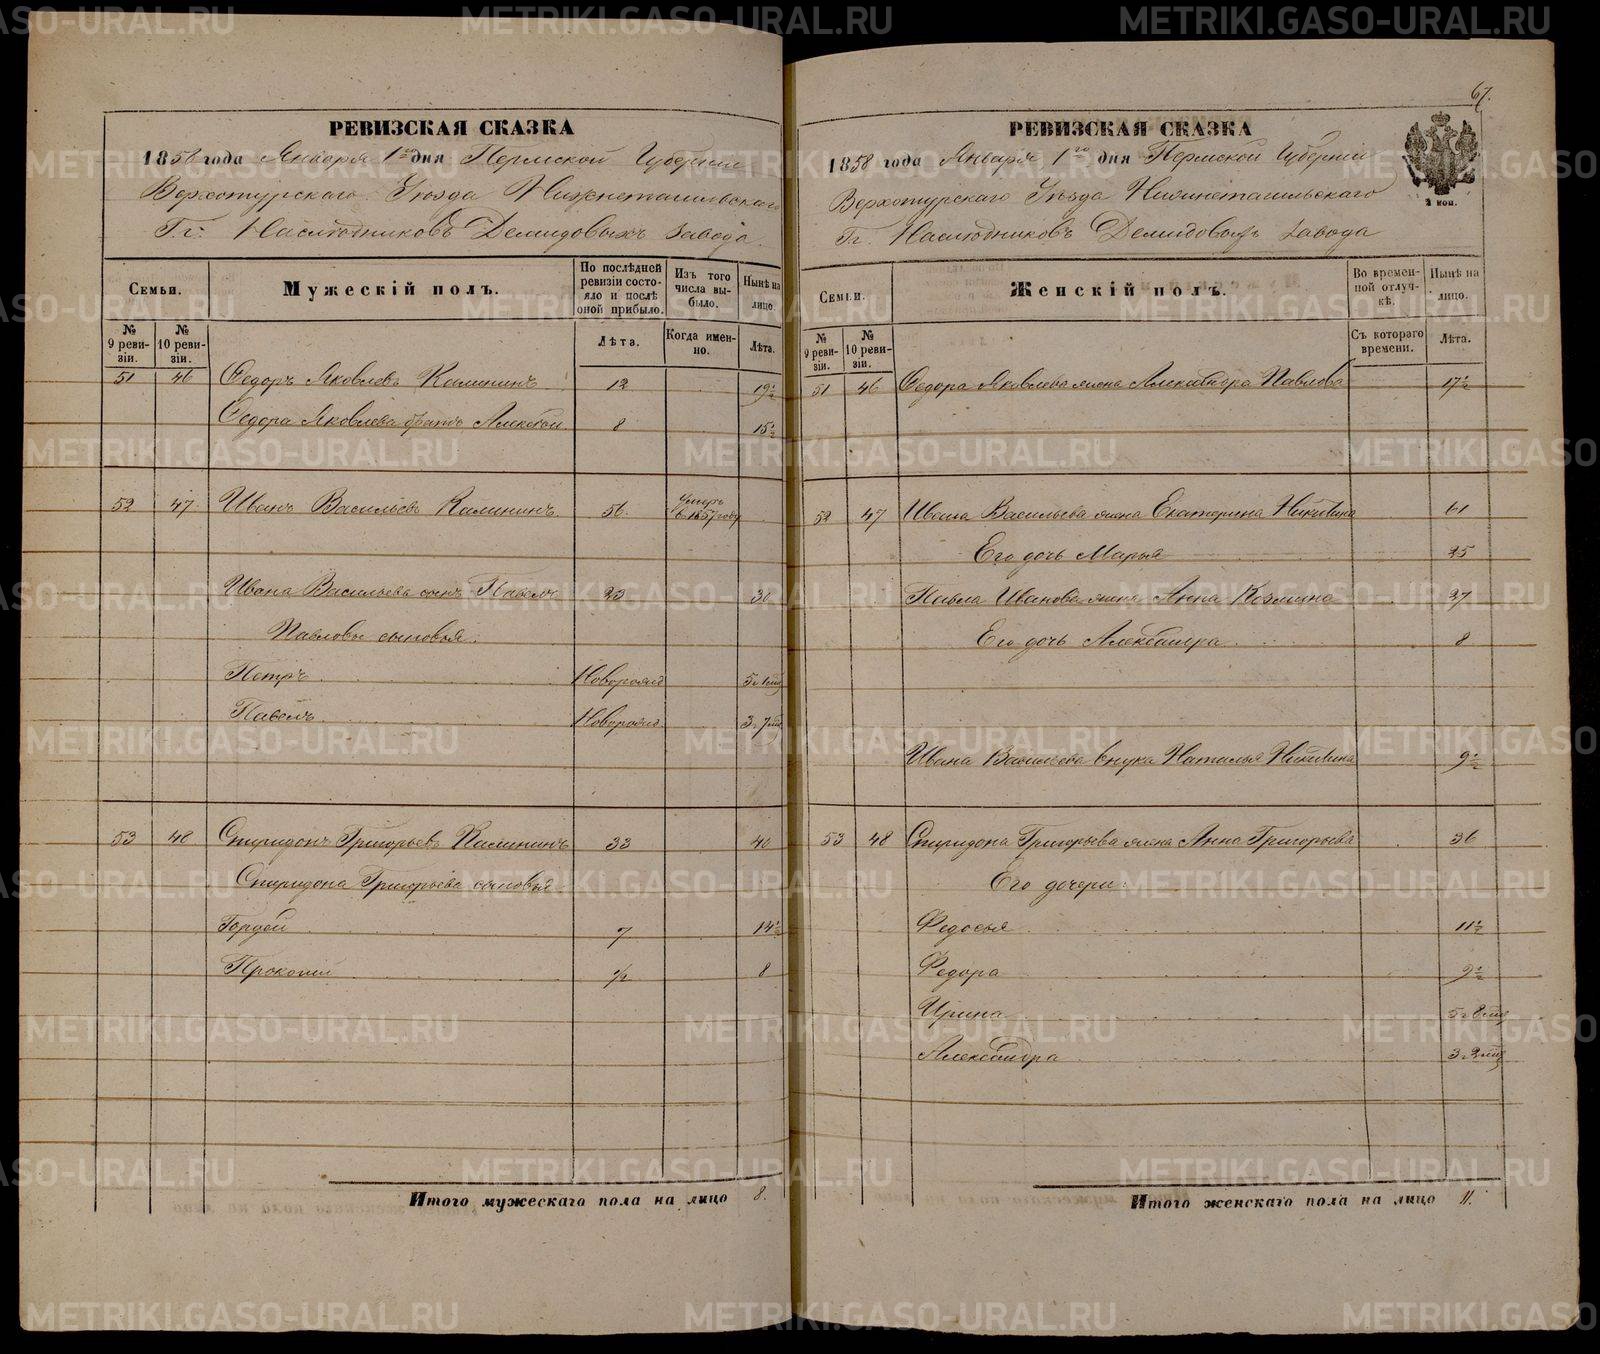 РЕВИЗСКАЯ СКАЗКА
1858 года Января 1го дня Пермской Губерніи
Верхотурскаго Уѣзда Нижнетагильскаго
Гг. Наслѣдниковъ Демидовыхъ завода.
Семьи.
№ 9 ревизіи.
№ 10 ревизіи.
Мужескій полъ.
По послѣдней ревизіи состояло и послѣ оной прибыло.
Лѣта.
Изъ того числа выбыло.
Когда именно.
Нынѣ на лицо.
Лѣта.
51 46 Ѳедоръ Яковлевъ Калининъ 12 19½
Ѳедора Яковлева братъ Алексѣй 8 15½
52 47. Иванъ Васильевъ Калининъ. 56. Умеръ въ 1857 году
Ивана Васильева сынъ Павелъ 23 30
Павловы сыновья:
Петръ Новорожд 5. 1 мѣс
Павелъ Новорожд. 3. 7 мѣс
53 48 Спиридонъ Григорьевъ Калининъ 33 40
Спиридона Григорьева сыновья
Гордей 7 14½
Прокопій ½ 8
Итого мужескаго пола на лицо 8.
67.
РЕВИЗСКАЯ СКАЗКА
1858 года Января 1го дня Пермской Губерніи
Верхотурскаго Уѣзда Нижнетагильскаго
Гг. Наслѣдниковъ Демидовыхъ завода
2 коп.
Семьи.
№ 9 ревизіи.
№ 10 ревизіи.
Женскій полъ.
Во временной отлучкѣ.
Съ котораго времени.
Нынѣ на лицо.
Лѣта.
51 46 Ѳедора Яковлева жена Александра Павлова 17½
52 47 Ивана Васильева жена Екатерина Никитина 61
Его дочь Марья 25
Павла Иванова жена Анна Козмина 27
Его дочь Александра 8
Ивана Васильева внука Наталья Никитина 9½
53 48 Спиридона Григорьева жена Анна Григорьева 36
Его дочери:
Федосья 11½
Федора 9½
Ирина 5. 8 мѣс
Александра 3. 2 мѣс
Итого женскаго пола на лицо 11.
METRIKI.GASO-URAL.RU